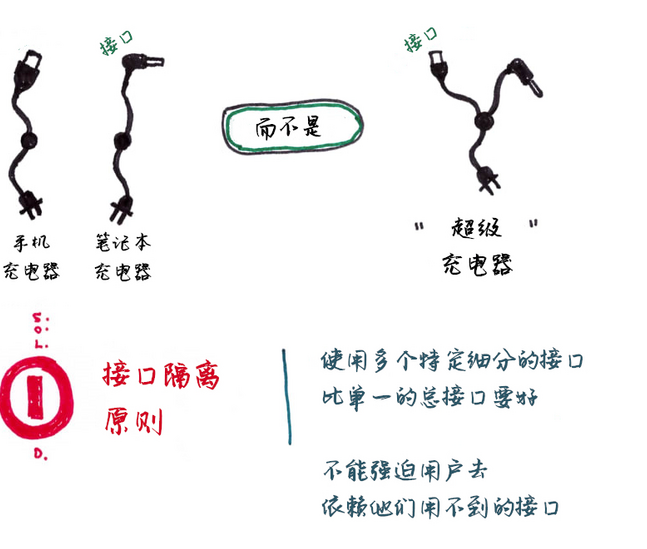 接口
接口
而不是
手机
充电器
笔记本
充电器
"超级"
充电器
S.
O.
L.
I
D.
接口隔离
原则
使用多个特定细分的接口
比单一的总接口要好
不能强迫用户去
依赖他们用不到的接口